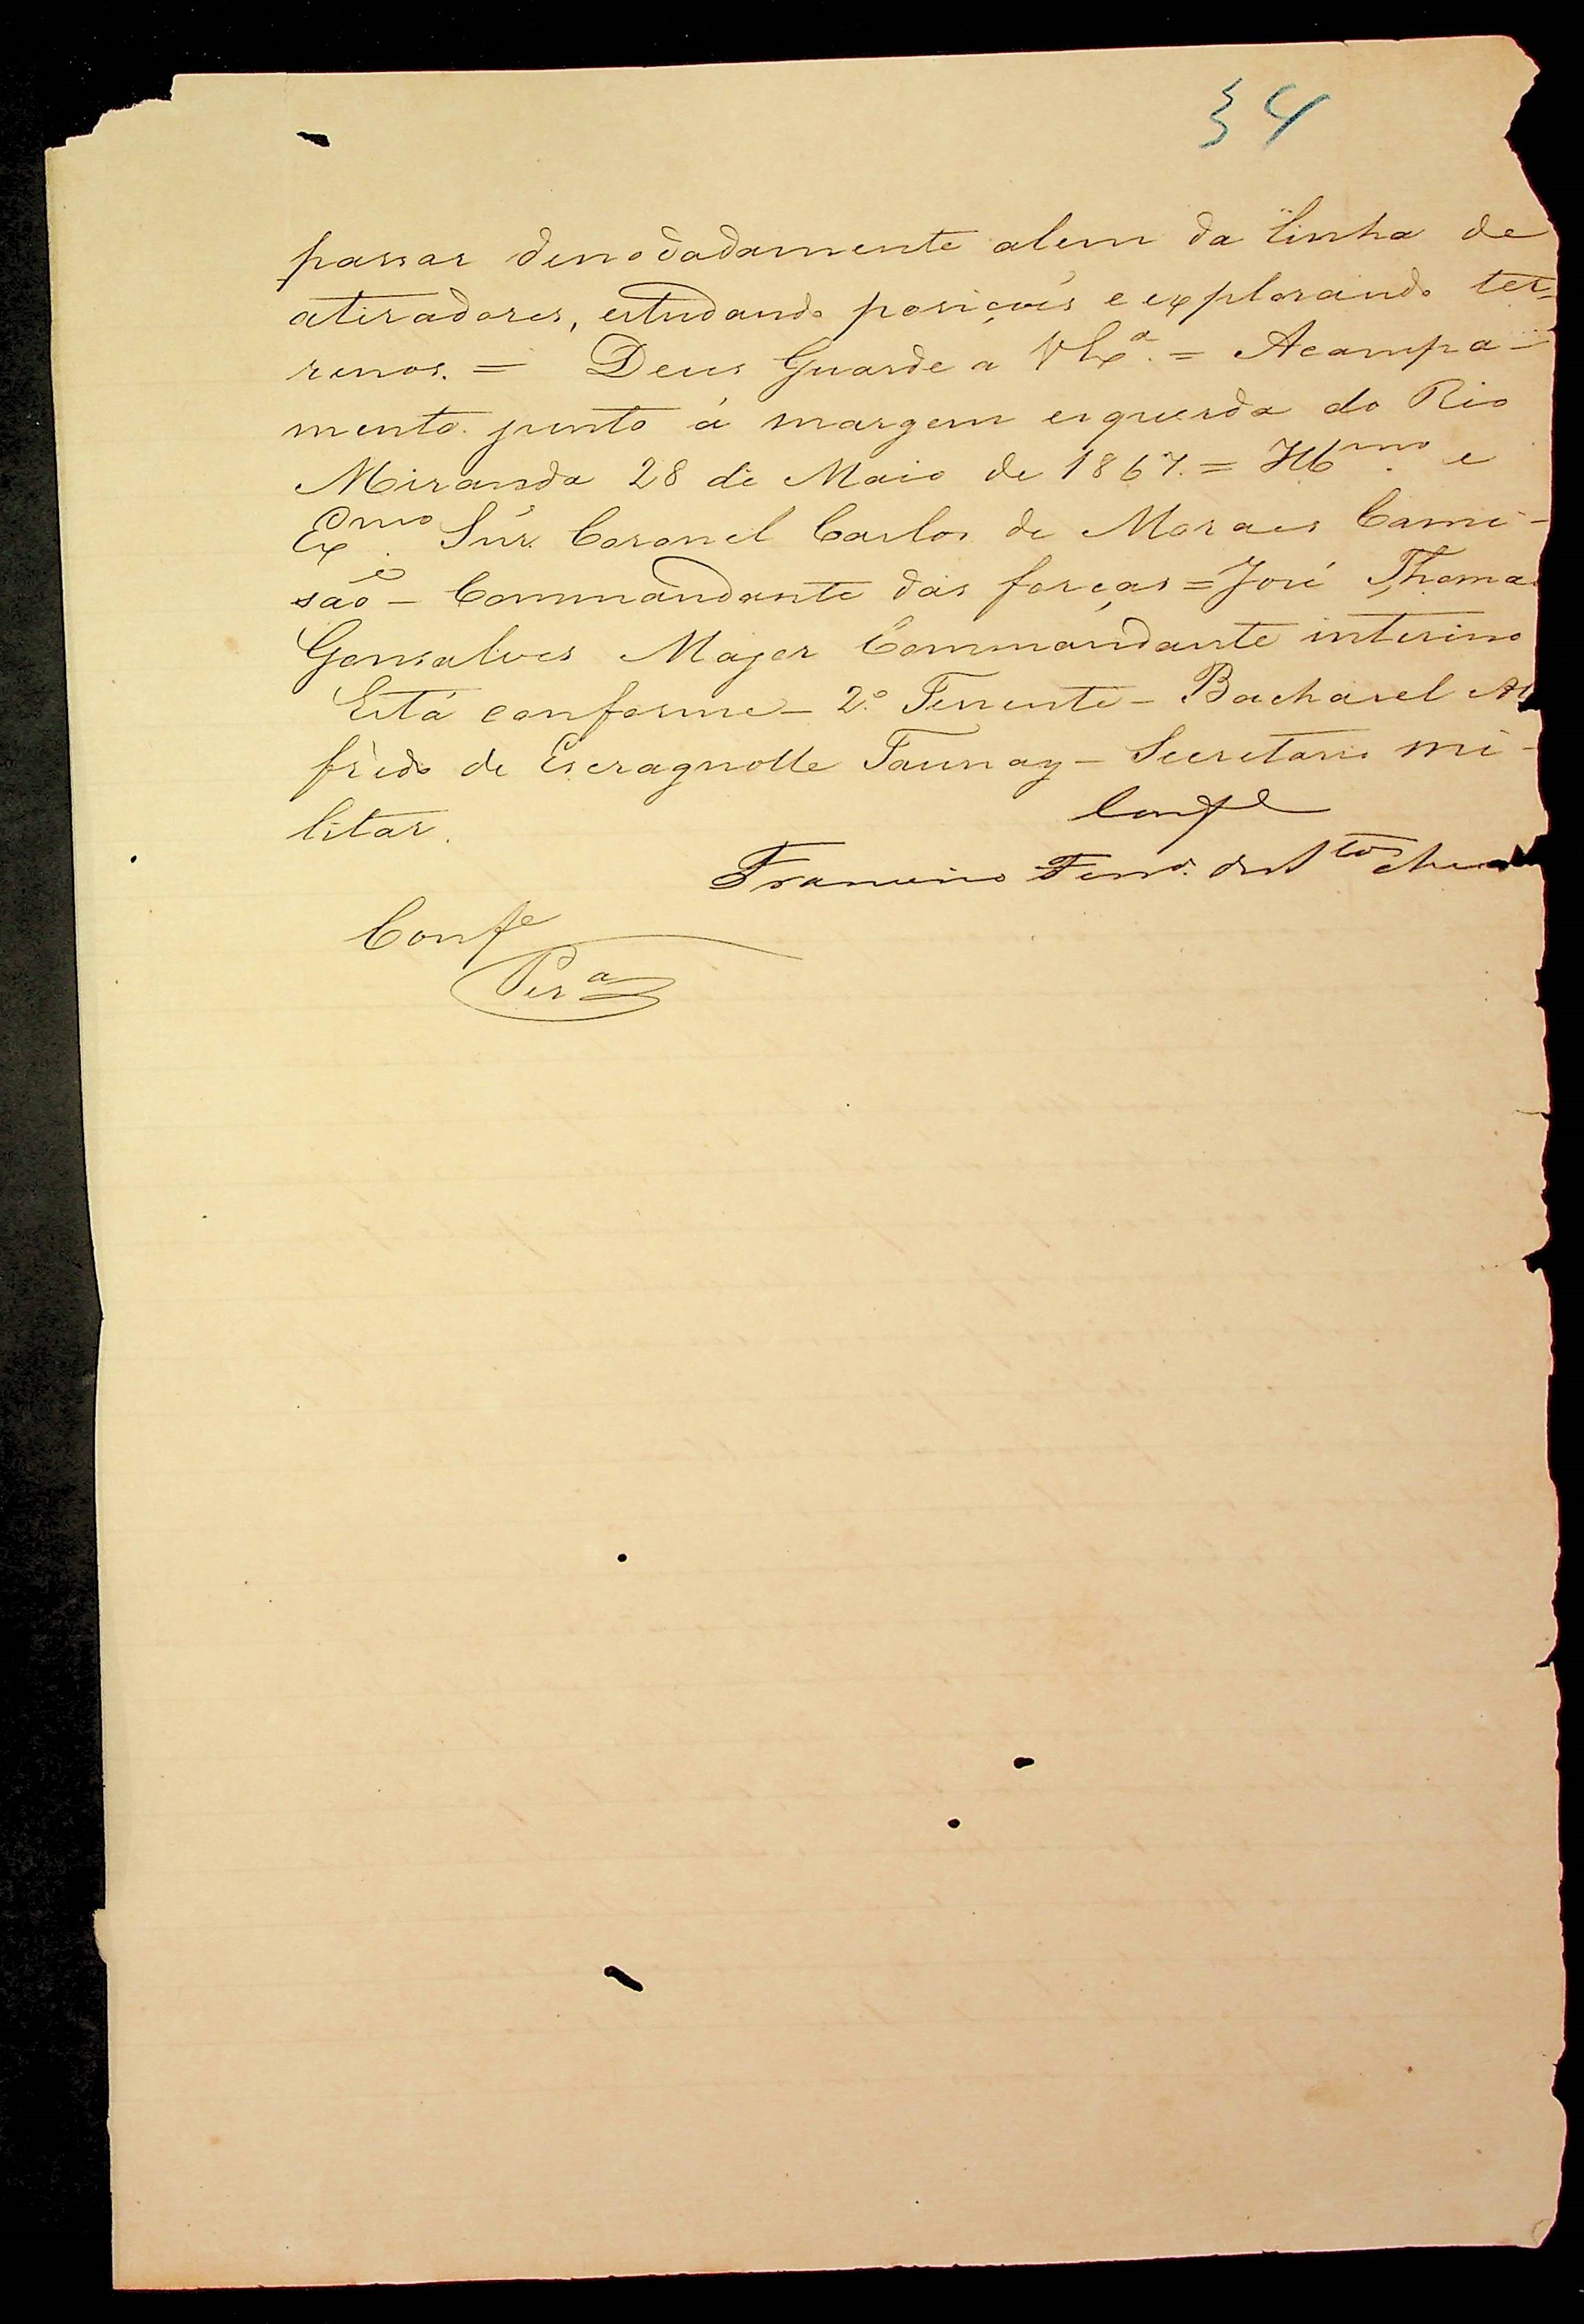 34
passar denodadamente alem da linha de
atiradores, estudando posiçoẽs e explorando ter-
renos. = Deus Guarde a VEx.ª = Acampa-
mento junto á margem esquerda do Rio
Miranda 28 de Maio de 1867. = Ill.mo e
Ex.mo Snr. Coronel Carlos de Moraes Cami-
saõ - Commandante das forças = José Thoma
Gonsalves Major Commandante interino
Está conforme - 2.º Tenente - Bacharel Al
fredo de Escragnolle Taunay - Secretario mi-
litar.
Conf.e
Francisco
Conf.e
Per.ª